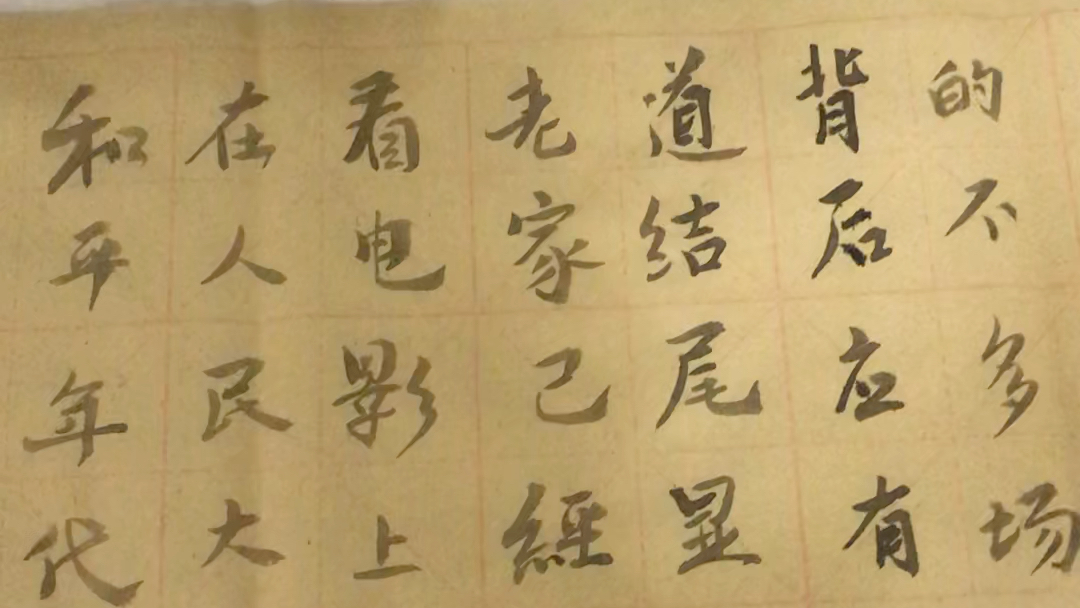 的不多场
背后应有
道结尾显
老家已經
看电影上
在人民大
和平年代